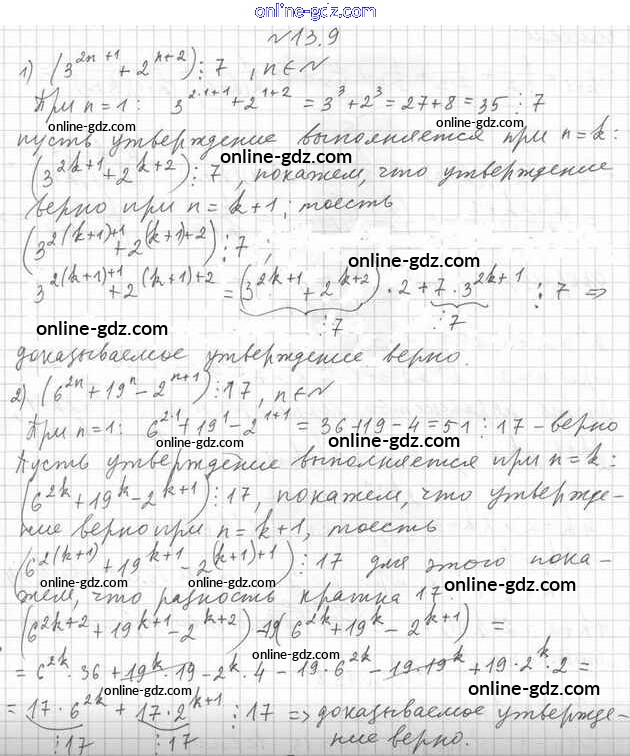 online-gdz.com
№13.9
1) (3^{2n+1} + 2^{n+2}) ⋮ 7, n ∈ N
При n = 1: 3^{2·1+1} + 2^{1+2} = 3^3 + 2^3 = 27 + 8 = 35 ⋮ 7
online-gdz.com online-gdz.com
пусть утверждение выполняется при n = k:
online-gdz.com
(3^{2k+1} + 2^{k+2}) ⋮ 7, покажем, что утверждение
верно при n = k+1, тоесть
(3^{2(k+1)+1} + 2^{(k+1)+2}) ⋮ 7;
online-gdz.com
3^{2(k+1)+1} + 2^{(k+1)+2} = (3^{2k+1} + 2^{k+2}) · 2 + 7 · 3^{2k+1} ⋮ 7 ⇒
⋮ 7 ⋮ 7
online-gdz.com online-gdz.com
доказываемое утверждение верно.
2) (6^{2n} + 19^n - 2^{n+1}) ⋮ 17, n ∈ N
online-gdz.com
При n = 1: 6^{2·1} + 19^1 - 2^{1+1} = 36 + 19 - 4 = 51 ⋮ 17 - верно
online-gdz.com online-gdz.com
Пусть утверждение выполняется при n = k:
(6^{2k} + 19^k - 2^{k+1}) ⋮ 17, покажем, что утвержде-
ние верно при n = k+1, тоесть
(6^{2(k+1)} + 19^{k+1} - 2^{(k+1)+1}) ⋮ 17 для этого пока-
online-gdz.com online-gdz.com online-gdz.com
жем, что разность кратна 17:
(6^{2k+2} + 19^{k+1} - 2^{k+2}) - 19(6^{2k} + 19^k - 2^{k+1}) =
online-gdz.com online-gdz.com
= 6^{2k} · 36 + 19^k · 19 - 2^k · 4 - 19 · 6^{2k} - 19 · 19^k + 19 · 2^k · 2 =
online-gdz.com online-gdz.com
= 17 · 6^{2k} + 17 · 2^{k+1} ⋮ 17 ⇒ доказываемое утвержде-
⋮ 17 ⋮ 17 ние верно.
online-gdz.com online-gdz.com